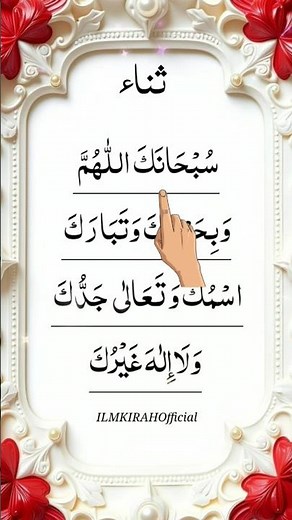 ثناء
سُبْحَانَكَ اللّٰهُمَّ
وَتَبَارَكَ
اسْمُكَ وَتَعَالٰى جَدُّكَ
وَلَا إِلٰهَ غَيْرُكَ
ILMKIRAHOfficial